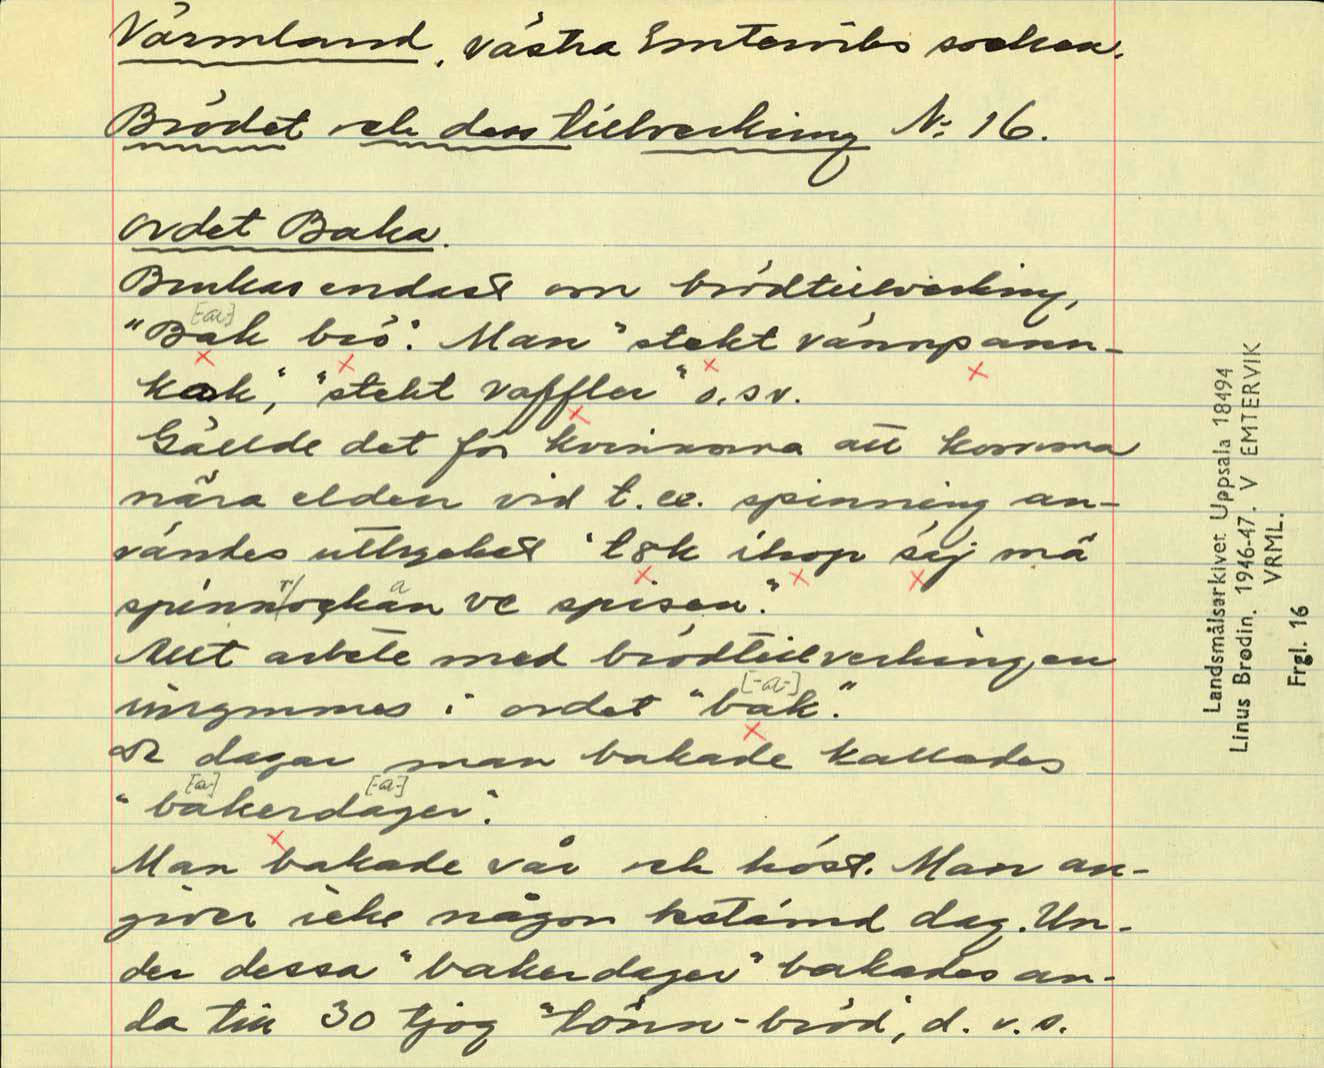 Värmland, västra Emterviks socken.
Brödet och dess tillverkning N: 16.
Ordet Baka.
Brukas endast om brödtillverkning,
[-a-]
"Bak brö". Man "stekt vännpann-
kak", "stekt vaffler" o.s.v.
Gällde det för kvinnorna att komma
nära elden vid t. ex. spinning an-
vändes uttrycket "tök ihop säj mä
spinnrockan ve spisen."
Allt arbete med brödtillverkningen
[-a-]
inrymmes i ordet "bak."
De dagar man bakade kallades
[a] [-a-]
"bakerdager".
Man bakade vår och höst. Man an-
giver icke någon bestämd dag. Un-
der dessa "bakerdager" bakades än-
da till 30 tjog "tönn-bröd", d. v. s.
Landsmålsarkivet Uppsala 18494
Linus Brodin. 1946-47. V EMTERVIK
VRML.
Frgl. 16